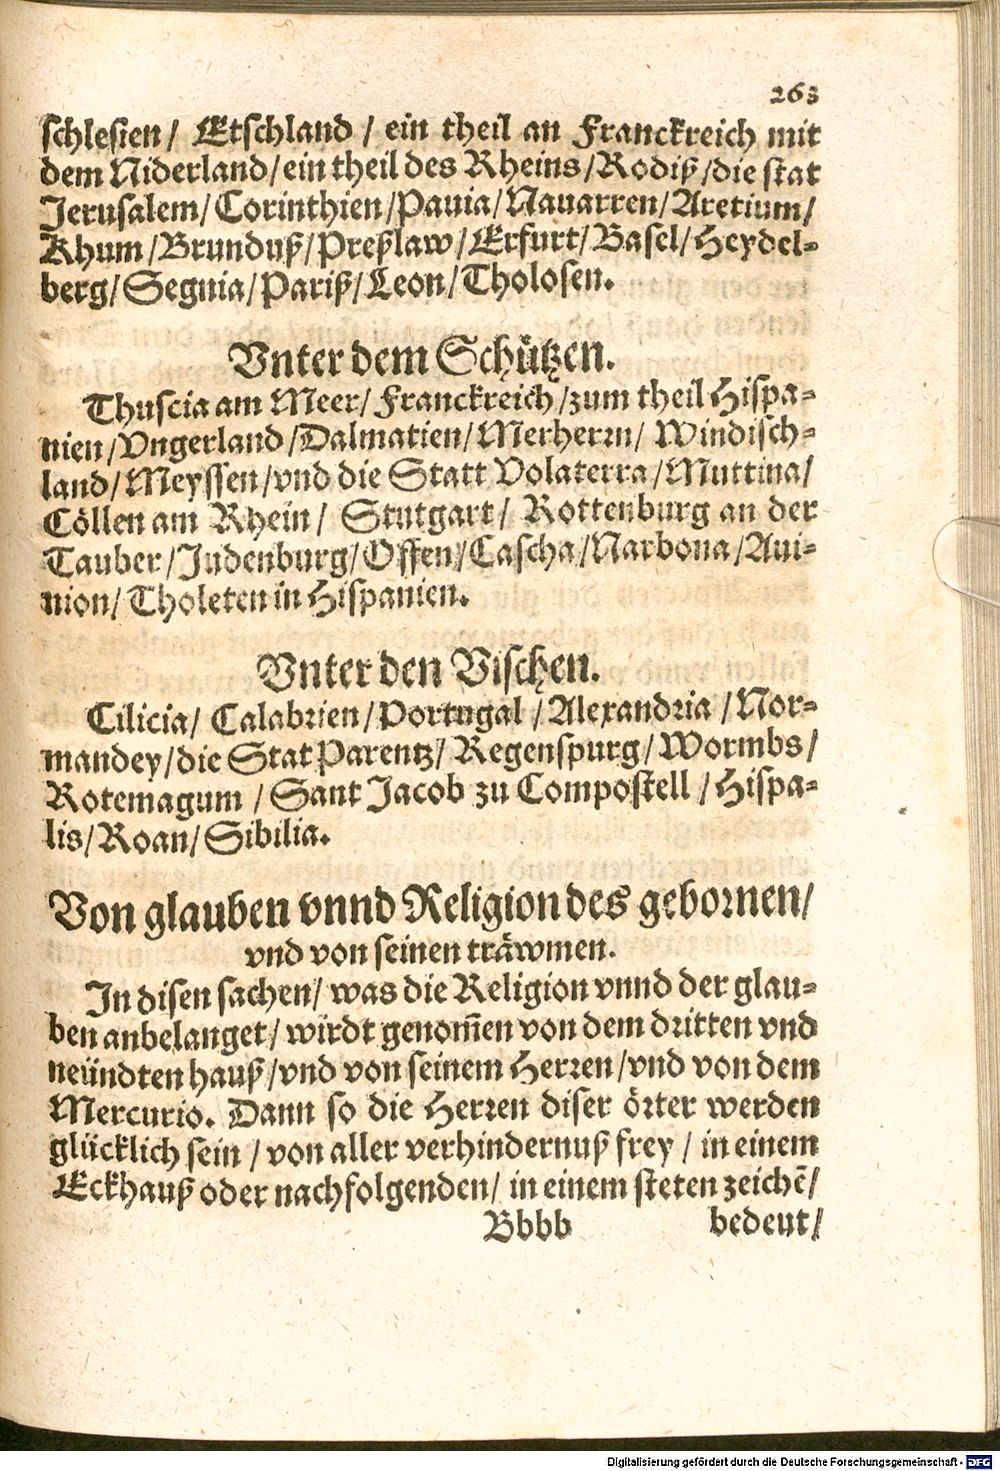 263
schlesien/ Etschland / ein theil an Franckreich mit
dem Niderland/ein theil des Rheins/Rodiß/die stat
Jerusalem/Corinthien/Pauia/Nauarren/Aretium/
Rhum/Brundusß/Preßlaw/Erfurt/Basel/Heydel-
berg/Seguia/Pariß/Leon/Tholosen.
Vnter dem Schützen.
Thuscia am Meer/Franckreich/zum theil Hispa-
nien/Vngerland/Dalmatien/Merherrn/ Windisch-
land/Meyssen/vnd die Statt Volaterra/Muttina/
Cöllen am Rhein/ Stutgart/ Rottenburg an der
Tauber/Judenburg/Offen/Cascha/Narbona/Aui-
nion/Tholeten in Hispanien.
Vnter den Vischen.
Cilicia/ Calabrien/Portugal /Alexandria /Nor-
mandey/die Stat Parentz/ Regenspurg/Wormbs/
Rotemagum /Sant Jacob zu Compostell /Hispa-
lis/Roan/Sibilia.
Von glauben vnnd Religion des gebornen/
vnd von seinen träwmen.
In disen sachen/ was die Religion vnnd der glau-
ben anbelanget/ wirdt genom̄en von dem dritten vnd
neündten hauß/vnd von seinem Herren/vnd von dem
Mercurio. Dann so die Herren diser örter werden
glücklich sein / von aller verhindernuß frey / in einem
Eckhauß oder nachfolgenden/ in einem steten zeichē/
Bbbb bedeut/
Digitalisierung gefördert durch die Deutsche Forschungsgemeinschaft - DFG